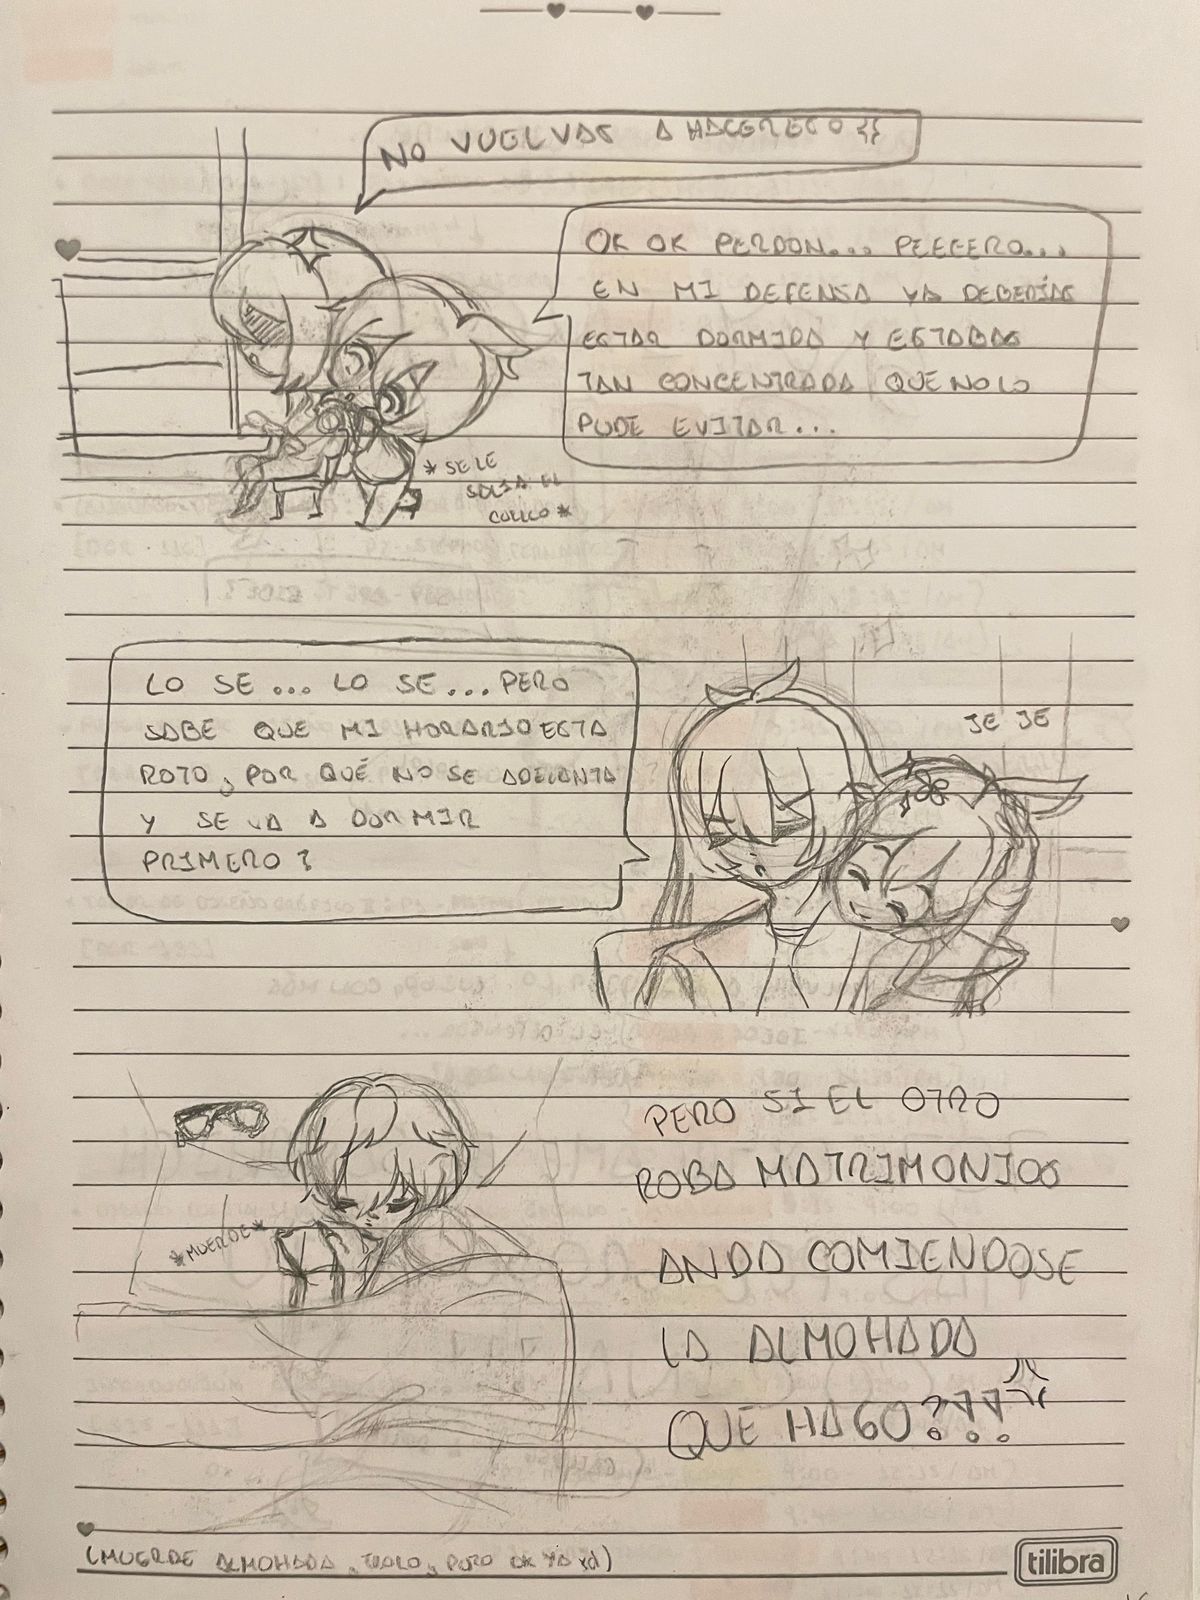 NO VUELVAS A HACER ESO
OK OK PERDON... PEEEERO...
EN MI DEFENSA YA DEBERÍAS
ESTAR DORMIDA Y ESTABAS
TAN CONCENTRADA QUE NO LO
PUDE EVITAR...
*SE LE
SALIA EL
*
LO SE... LO SE... PERO
SABE QUE MI HORARIO ESTA
ROTO, POR QUÉ NO SE ADELANTA
Y SE VA A DORMIR
PRIMERO?
JE JE
*MUERDE*
PERO SI EL OTRO
ROBA MATRIMONIOS
ANDA COMIENDOSE
LA ALMOHADA
QUE HAGO???
(MUERDE ALMOHADA, OK YA xd)
tilibra